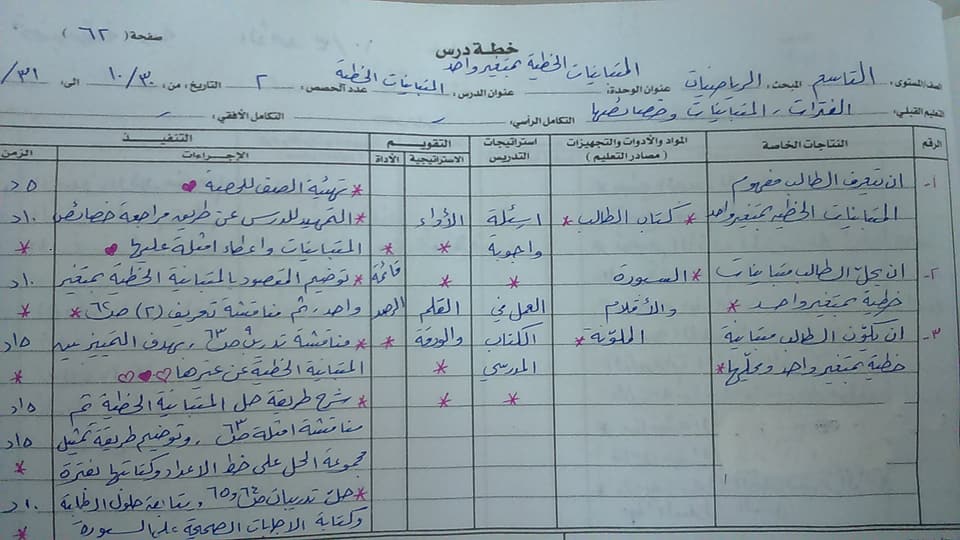 صفحة ( ٦٢ )
خطة درس
الصف/المستوى: التاسع المبحث: الرياضيات عنوان الوحدة: المتباينات الخطية بمتغير واحد عنوان الدرس: المتباينات الخطية عدد الحصص: ٢ التاريخ: من: ١٠/٣٠ إلى: ٣١/
التعلم القبلي: الفترات، المتباينات وخصائصها التكامل الرأسي: التكامل الأفقي:
الرقم النتاجات الخاصة المواد والأدوات والتجهيزات (مصادر التعليم) استراتيجيات التدريس التقويم التنفيذ
الاستراتيجية الأداة الإجراءات الزمن
١- ان يتعرف الطالب مفهوم * تهيئة الصف للحصة ٥ د
المتباينات الخطية بمتغير واحد * كتاب الطالب * اسئلة الأداء * التمهيد للدرس عن طريق مراجعة خصائص ١٠ د
واجوبة * * المتباينات واعطاء امثلة عليها *
٢- ان يحل الطالب متباينات * السبورة * * قائمة * توضيح المقصود بالمتباينة الخطية بمتغير ١٠ د
خطية بمتغير واحد * والأقلام العمل في القلم الرصد واحد، ثم مناقشة تعريف (٢) ص٦٢ * *
٣- ان يكوّن الطالب متباينة الملونة * الكتاب والورقة * * مناقشة تدريب ٩ ص٦٣، بهدف التمييز بين ١٥ د
خطية بمتغير واحد ويحلّها * المدرسي * المتباينة الخطية عن غيرها *
* * * شرح طريقة حل المتباينة الخطية ثم ١٥ د
مناقشة امثلة ص٦٣، وتوضيح طريقة تمثيل ١٥ د
مجموعة الحل على خط الاعداد وكتابتها كفترة *
* حل تدريبات ص٦٤ و٦٥، ومتابعة حلول الطلبة ١٠ د
وكتابة الاجابات الصحيحة على السبورة *